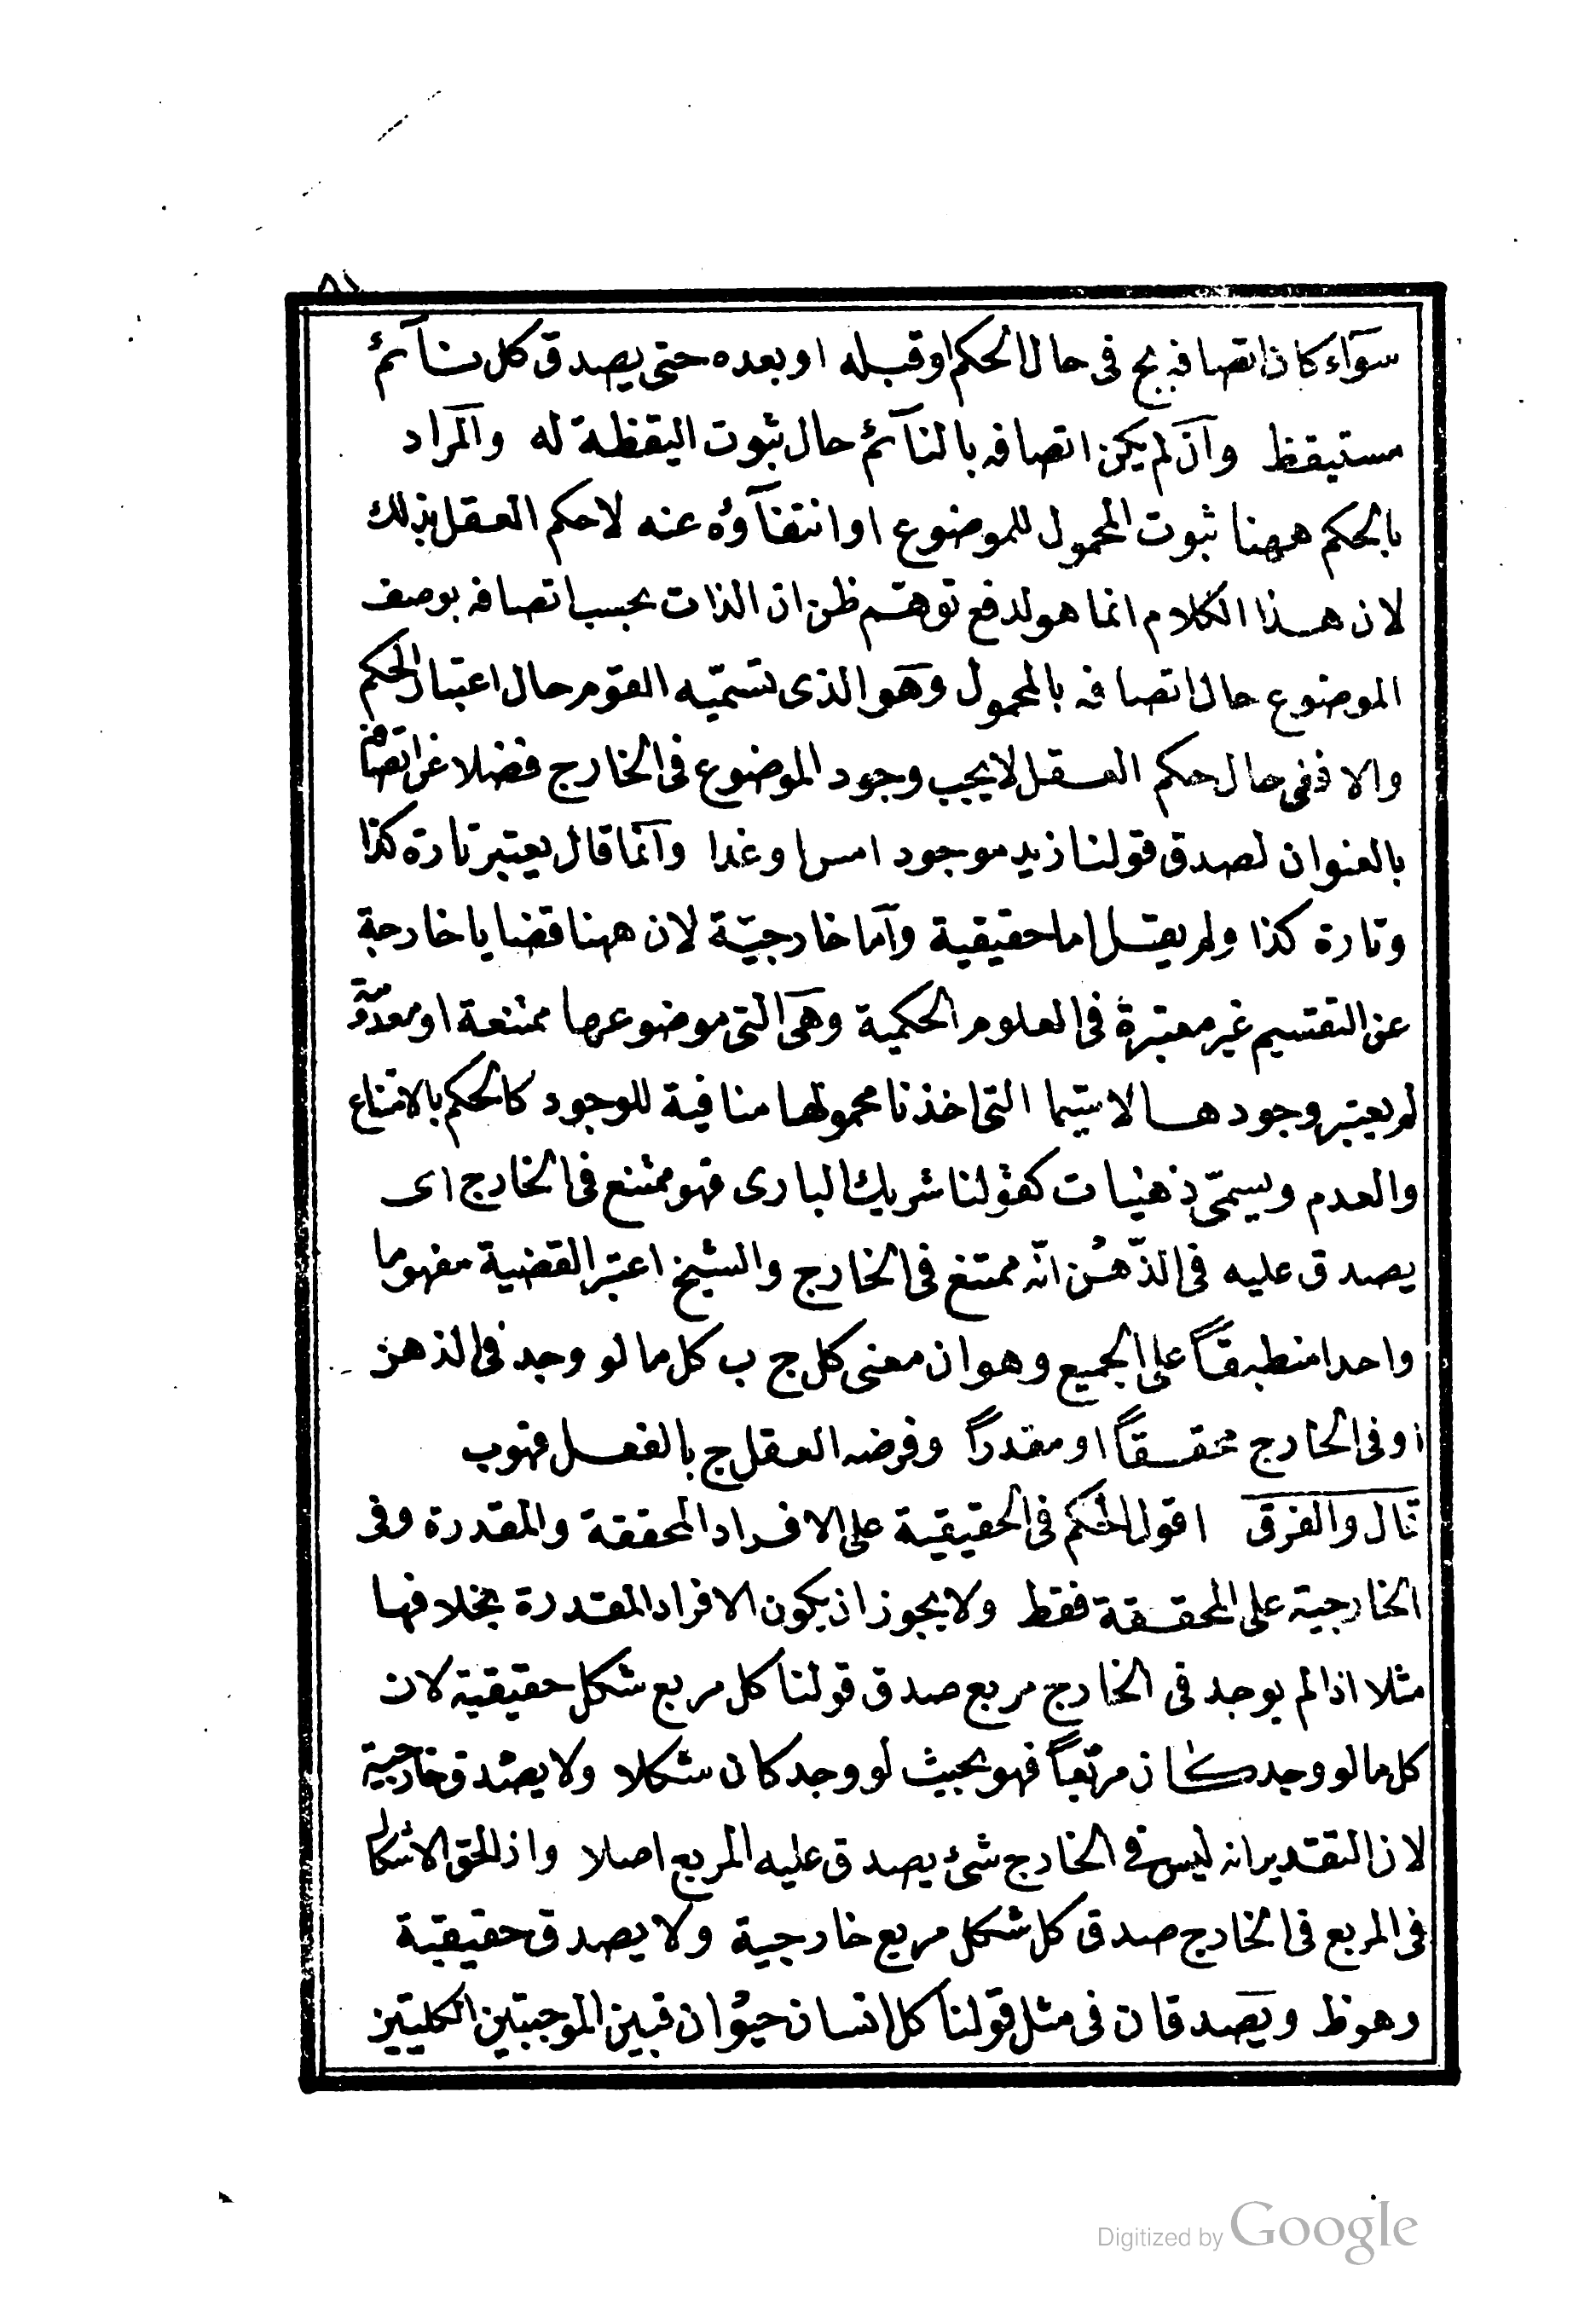 ٥١
سوآء كان اتصافه بج فى حال الحكم او قبله او بعده حتى يصدق كل نآئم
مستيقظ وان لم يكن اتصافه بالنآئم حال ثبوت اليقظة له والمراد
بالحكم ههنا ثبوت المحمول للموضوع او انتفآؤه عنه لا حكم العقل بذلك
لان هذا الكلام انما هو لدفع توهم ظن ان الذات بحسب اتصافه بوصف
الموضوع حال اتصافه بالمحمول وهو الذى تسميه القوم حال اعتبار الحكم
والا ففى حال حكم العقل لا يجب وجود الموضوع فى الخارج فضلا عن اتصافه
بالعنوان لصدق قولنا زيد موجود امس او غدا وانما قال يعتبر تارة كذا
وتارة كذا ولم يقل اما حقيقية واما خارجيّة لان ههنا قضايا خارجة
عن التقسيم غير معتبرة فى العلوم الحكمية وهى التى موضوعها ممتنعة او معدومة
لم يعتبر وجودها لا سيّما التى اخذنا محمولها منافية للوجود كالحكم بالامتناع
والعدم ويسمّى ذهنيات كقولنا شريك البارى فهو ممتنع فى الخارج اى
يصدق عليه فى الذّهن انّه ممتنع فى الخارج والشيخ اعتبر القضية مفهوما
واحدا منطبقاً على الجميع وهو ان معنى كل ج ب كل ما لو وجد فى الذهن
او فى الخارج محققاً او مقدراً وفرضه العقل ج بالفعل فهو ب
قال والفرق اقول الحكم فى الحقيقية على الافراد المحققة والمقدرة وفى
الخارجية على المحققة فقط ولا يجوز ان يكون الافراد المقدرة بخلافها
مثلا اذا لم يوجد فى الخارج مربع صدق قولنا كل مربع شكل حقيقية لان
كل ما لو وجد كان مربّعاً فهو بحيث لو وجد كان شكلا ولا يصدق خارجية
لان التقدير انه ليس فى الخارج شئ يصدق عليه المربع اصلا واذا الحق الاشكال
فى المربع فى الخارج صدق كل شكل مربع خارجية ولا يصدق حقيقية
وهو ظ ويصدقان فى مثل قولنا كل انسان حيوان فبين الموجبتين الكليتين
Digitized by Google